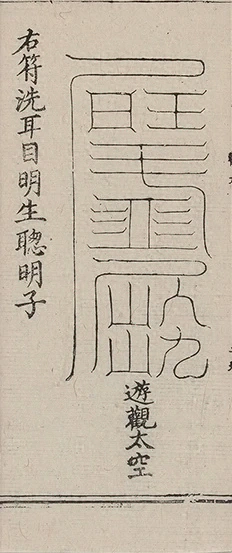 遊觀太空
右符洗耳目明生聰明子